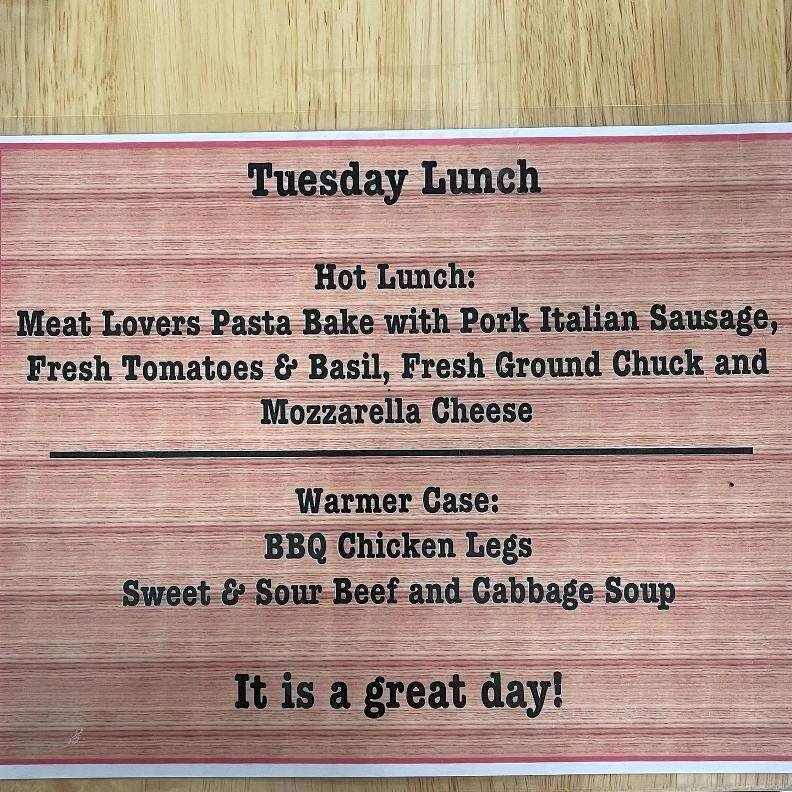 Tuesday Lunch
Hot Lunch:
Meat Lovers Pasta Bake with Pork Italian Sausage,
Fresh Tomatoes & Basil, Fresh Ground Chuck and
Mozzarella Cheese
Warmer Case:
BBQ Chicken Legs
Sweet & Sour Beef and Cabbage Soup
It is a great day!